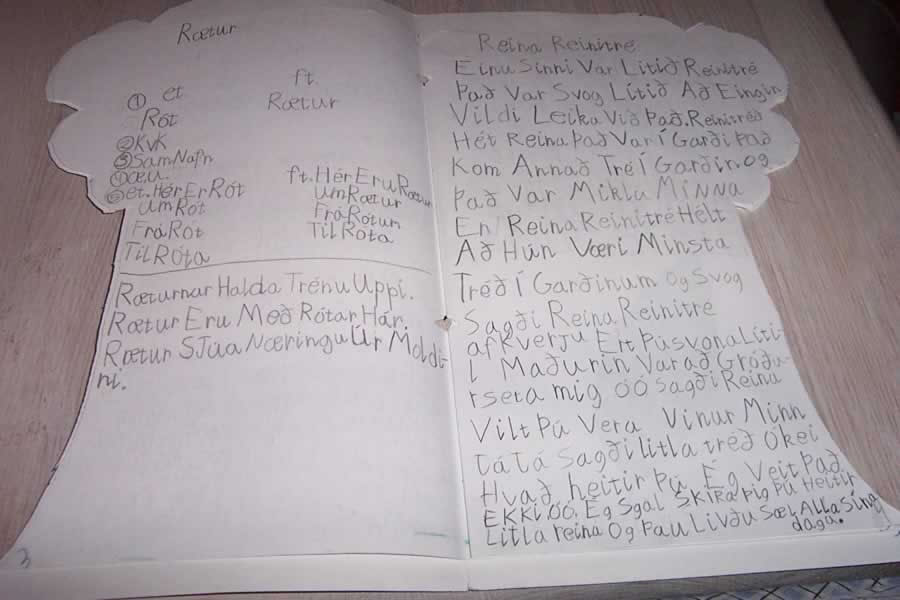 Rætur
et
ft.
① Rót
Rætur
② KvK
③ SamNafn
④ œu.
⑤ et. Hér Er Rót
Um Rót
Frá Rót
Til Róta
ft. Hér Eru Rætur
um Rætur
Frá Rótum
Til Róta
Ræturnar Halda Trénu Uppi.
Rætur Eru Með Rótar Hár.
Rætur SJúa Næringu Úr Moldi-
ni.
3
Reina Reinitré
Einu Sinni Var Lítið Reinitré
Það Var Svog Lítið Að Eingin
Vildi Leika Við Það. Reinitréð
Hét Reina Það Var Í Garði Það
Kom Annað Tré Í Garðin og
Það Var Miklu Minna
En Reina Reinitré Hélt
Að Hún Væri Minsta
Tréð Í Garðinum og Svog
Sagði Reina Reinitré
af Kverju Ert Þú svona Líti-
l Maðurin Var að Gróðu-
rseta mig óó sagði Reina
Vilt Þú Vera Vinur Minn
tá tá sagði litla tréð Ókei
Hvað heitir Þú Ég Veit Það
EKKI óó. Eg Sgal SKÍRA Þig Þú Heitir
Litla reina Og Þau Livðu Sæl Alla Síng
daga.